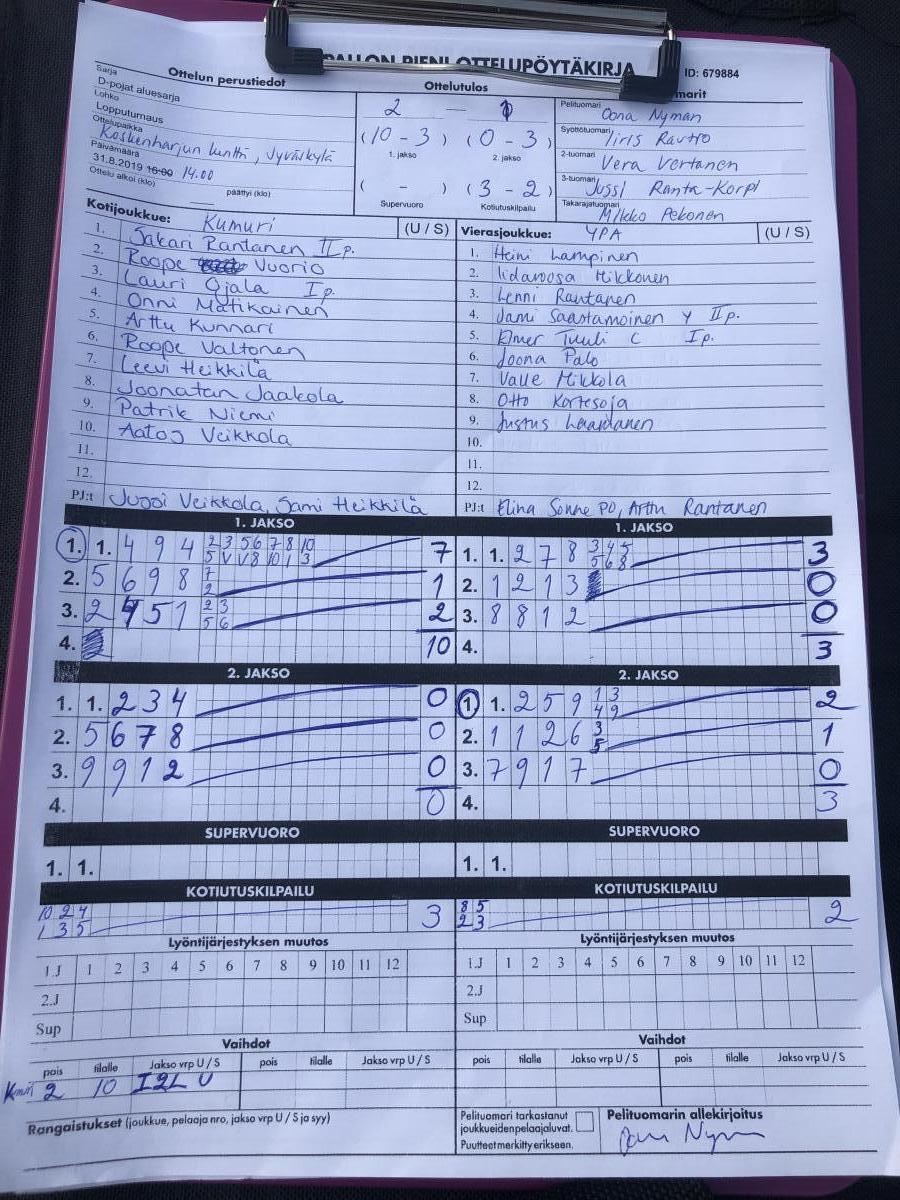 PALLON PIENI OTTELUPÖYTÄKIRJA
ID: 679884
Sarja Ottelun perustiedot Ottelutulos
D-pojat aluesarja
Lohko
Lopputurnaus
Ottelupaikka
Koskenharjun kenttä, Jyväskylä
Päivämäärä
31.8.2019 16:00 14.00
Ottelu alkoi (klo) päättyi (klo)
2 - 1
(10 - 3) (0 - 3)
1. jakso 2. jakso
( - ) (3 - 2)
Supervuoro Kotiutuskilpailu
Pelituomari Oona Nyman
Syöttötuomari Iiris Rautio
2-tuomari Vera Vertanen
3-tuomari Jussi Ranta-Korpi
Takarajatuomari Mikko Pekonen
Kotijoukkue: Kumuri (U / S)
1. Sakari Rantanen II p.
2. Roope Vuorio
3. Lauri Ojala I p.
4. Onni Matikainen
5. Arttu Kunnari
6. Roope Valtonen
7. Leevi Heikkilä
8. Joonatan Jaakola
9. Patrik Niemi
10. Aatos Veikkola
11.
12.
PJ:t Jussi Veikkola, Sami Heikkilä
Vierasjoukkue: YPA (U / S)
1. Heini Lampinen
2. Iidaroosa Mikkonen
3. Lenni Rautanen
4. Jami Saastamoinen Y II p.
5. Elmer Tuuli C I p.
6. Joona Palo
7. Valle Mikkola
8. Otto Kortesoja
9. Justus
10.
11.
12.
PJ:t Elina Sonne PO, Arttu Rantanen
1. JAKSO
1. 1. 4 9 4 2 3 5 6 7 8 10 7
5 V V 8 10 1 3
2. 5 6 9 8 7 1
2
3. 2 4 5 1 2 3 2
5 6
4. 10
1. JAKSO
1. 1. 2 7 8 3 4 5 3
5 6 8
2. 1 2 1 3 0
3. 8 8 1 2 0
4. 3
2. JAKSO
1. 1. 2 3 4 0
2. 5 6 7 8 0
3. 9 9 1 2 0
4. 0
2. JAKSO
1. 1. 2 5 9 1 3 2
4 9
2. 1 1 2 6 3 1
5
3. 7 9 1 7 0
4. 3
SUPERVUORO
1. 1.
SUPERVUORO
1. 1.
KOTIUTUSKILPAILU
10 2 4 3
1 3 5
KOTIUTUSKILPAILU
8 5 2
2 3
Lyöntijärjestyksen muutos
1.J 1 2 3 4 5 6 7 8 9 10 11 12
2.J
Sup
Lyöntijärjestyksen muutos
1.J 1 2 3 4 5 6 7 8 9 10 11 12
2.J
Sup
Vaihdot
pois tilalle Jakso vrp U / S pois tilalle Jakso vrp U / S
2 10 I2L U
Vaihdot
pois tilalle Jakso vrp U / S pois tilalle Jakso vrp U / S
Rangaistukset (joukkue, pelaaja nro, jakso vrp U / S ja syy)
Pelituomari tarkastanut
joukkueiden pelaajaluvat.
Puutteet merkitty erikseen.
Pelituomarin allekirjoitus